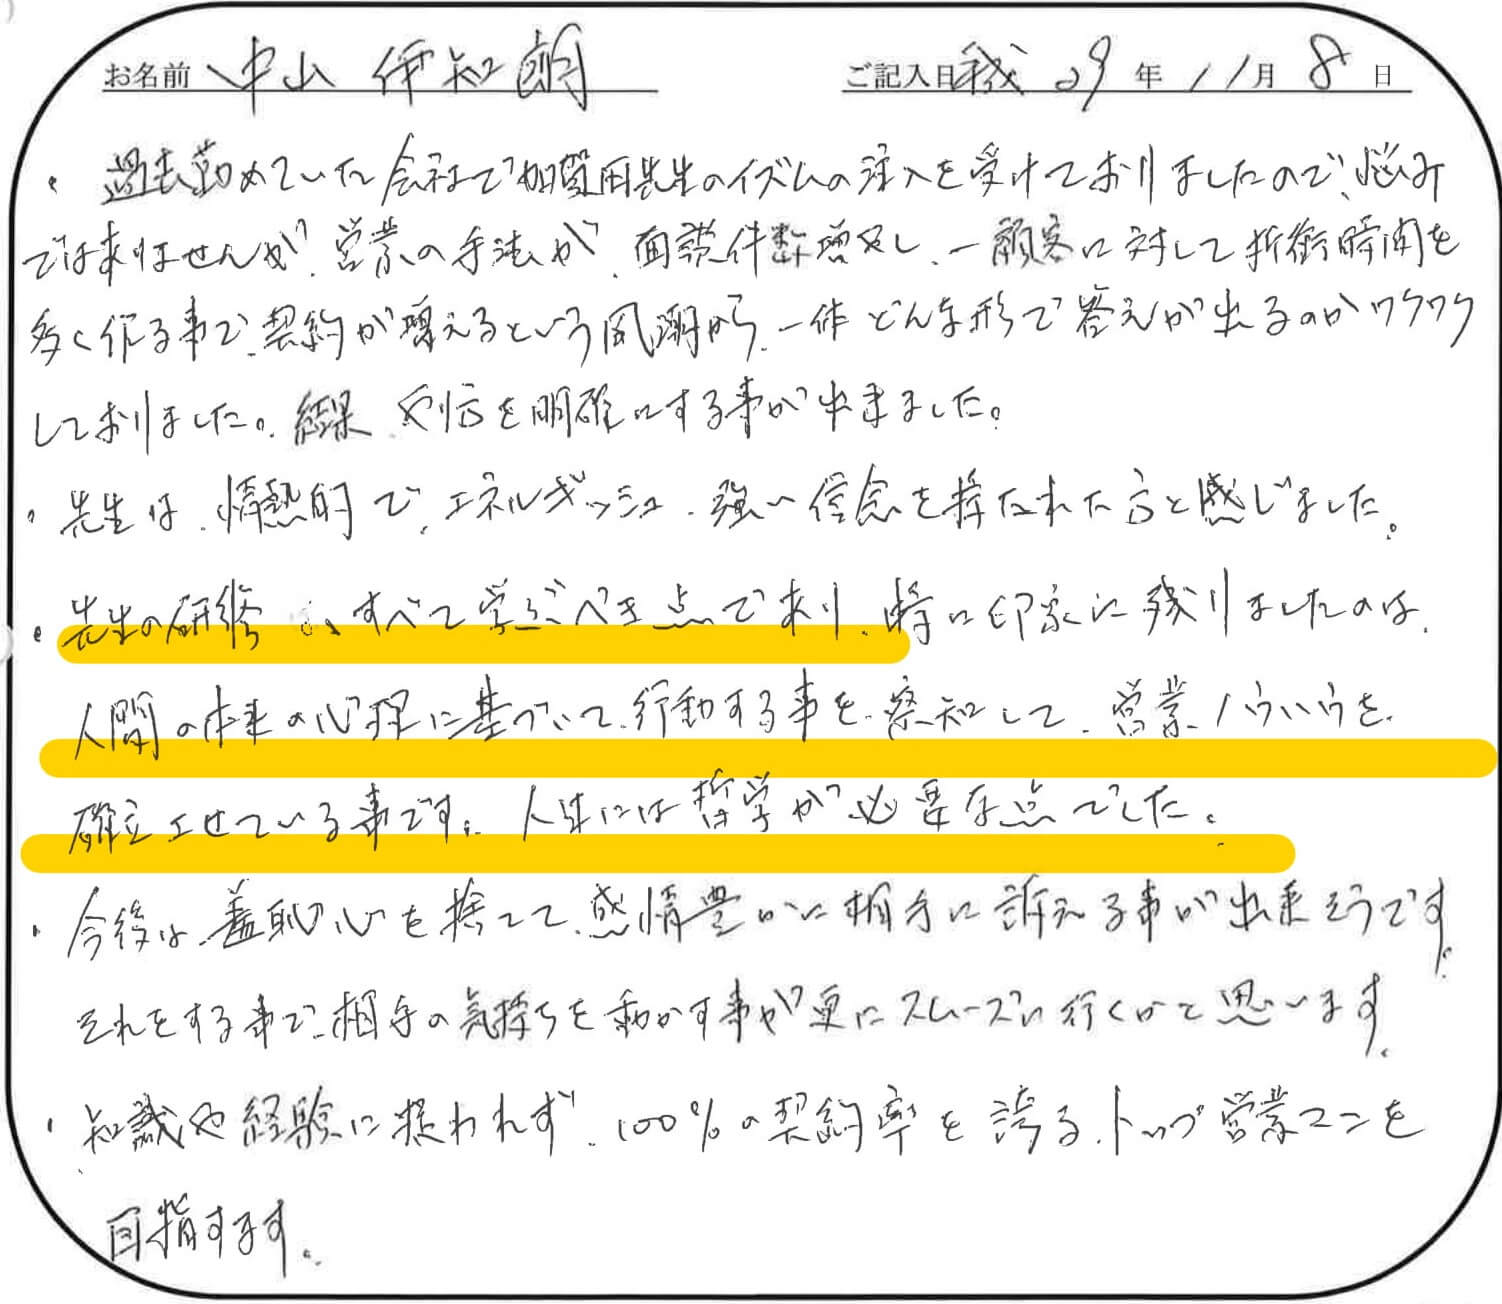 お名前 中山 伊知朗 ご記入日 平成29年11月8日
・過去勤めていた会社で加賀田先生のイズムの注入を受けておりましたので、悩み
ではありませんが、営業の手法が、面談件数増やし、一顧客に対して折衝時間を
多く作る事で、契約が増えるという風潮から、一体どんな形で答えが出るのかワクワク
しておりました。結果、やり方を明確にする事が出来ました。
・先生は、情熱的で、エネルギッシュ、強い信念を持たれた方と感じました。
・先生の研修は、すべて学ぶべき点であり、特に印象に残りましたのは、
人間の本来の心理に基づいて、行動する事を、察知して、営業ノウハウを、
確立させている事です。人生には哲学が必要な点でした。
・今後は、羞恥心を捨てて、感情豊かに相手に訴える事が出来そうです。
それをする事で、相手の気持ちを動かす事が更にスムーズに行くかと思います。
・知識や経験に捉われず、100%の契約率を誇る、トップ営業マンを
目指すます。